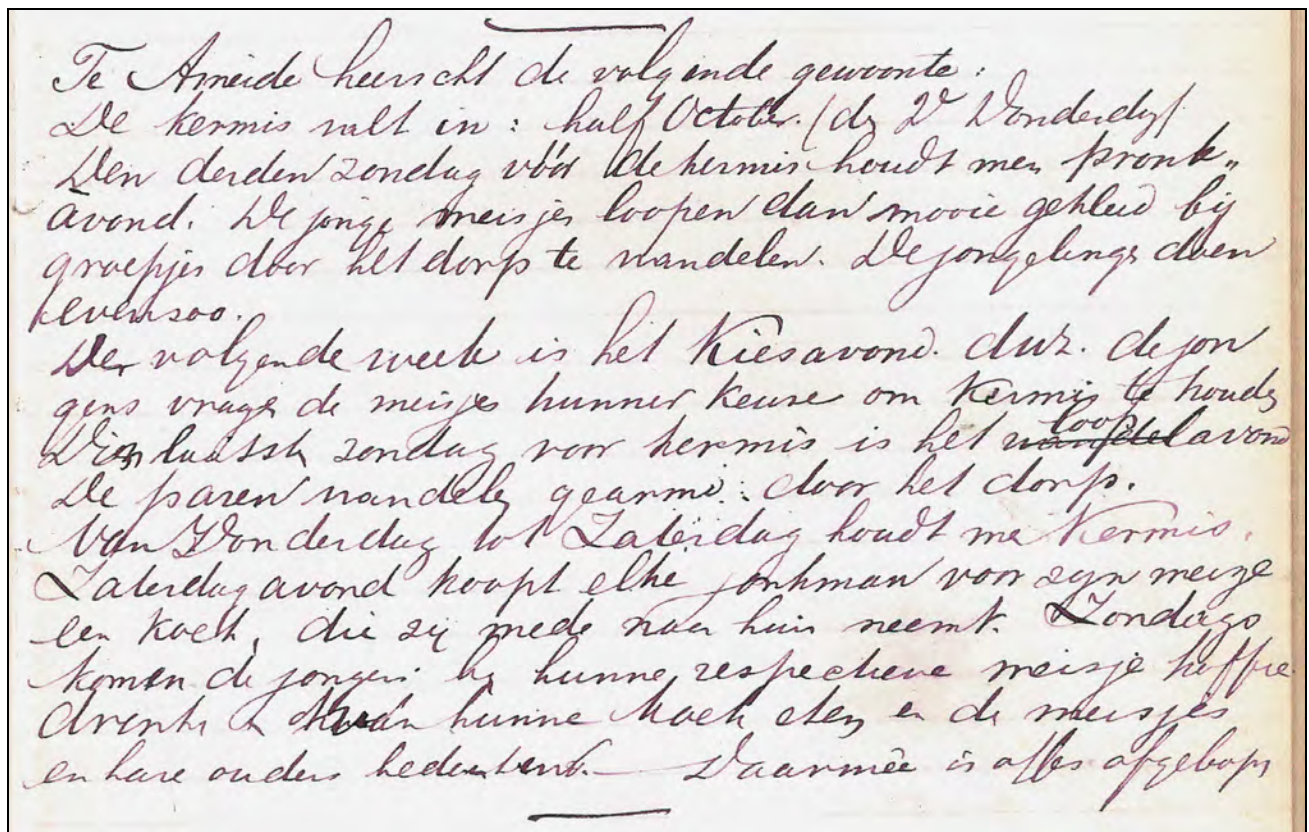 Te Ameide heerscht de volgende gewoonte:
De kermis valt in: half October. (de 2e Donderdag)
Den derden zondag vóór de kermis houdt men pronk„
avond. De jonge meisjes loopen dan mooie gekleed bij
groepjes door het dorp te wandelen. De jongelings doen
evenzoo.
De volgende week is het Kiesavond. dwz. de jon
gens vragen de meisjes hunner keuze om Kermis te houden
Den laatste zondag voor kermis is het loopavond
De paren wandelen gearmd door het dorp.
Van Donderdag tot Zaterdag houdt men Kermis.
Zaterdagavond koopt elke jonkman voor zijn meisje
een koek, die zij mede naar huis neemt. Zondags
komen de jongens bij hunne respectieve meisje koffie
drinken en hunne koek eten en de meisjes
en hare ouders bedanken. — Daarmêe is alles afgeloopen